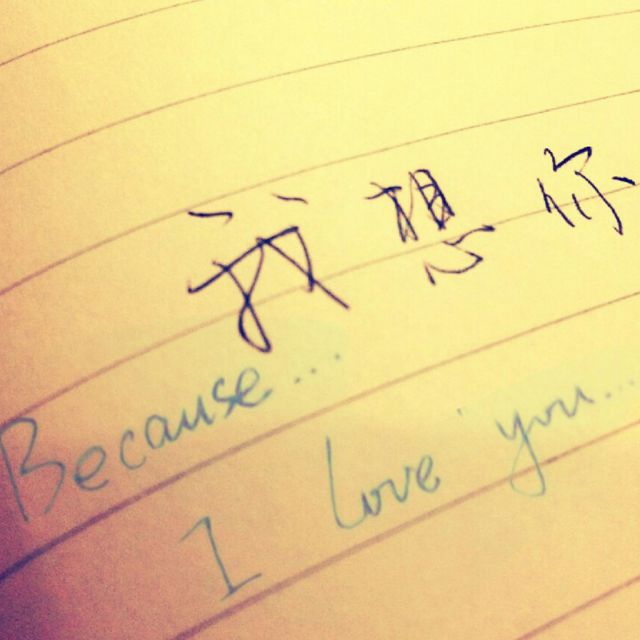 我想你
Because...
I Love you...